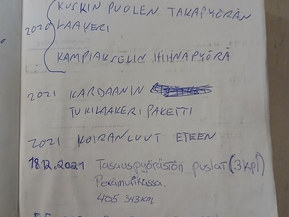 KUSKIN PUOLEN TAKAPYÖRÄN
2020 LAAKERI
KAMPIAKSELIN HIHNAPYÖRÄ
2021 KARDAANIN
TUKILAAKERIPAKETTI
2021 KOIRANLUUT ETEEN
18.12.2021 Tasauspyörästön puslat (3kpl)
405 343km